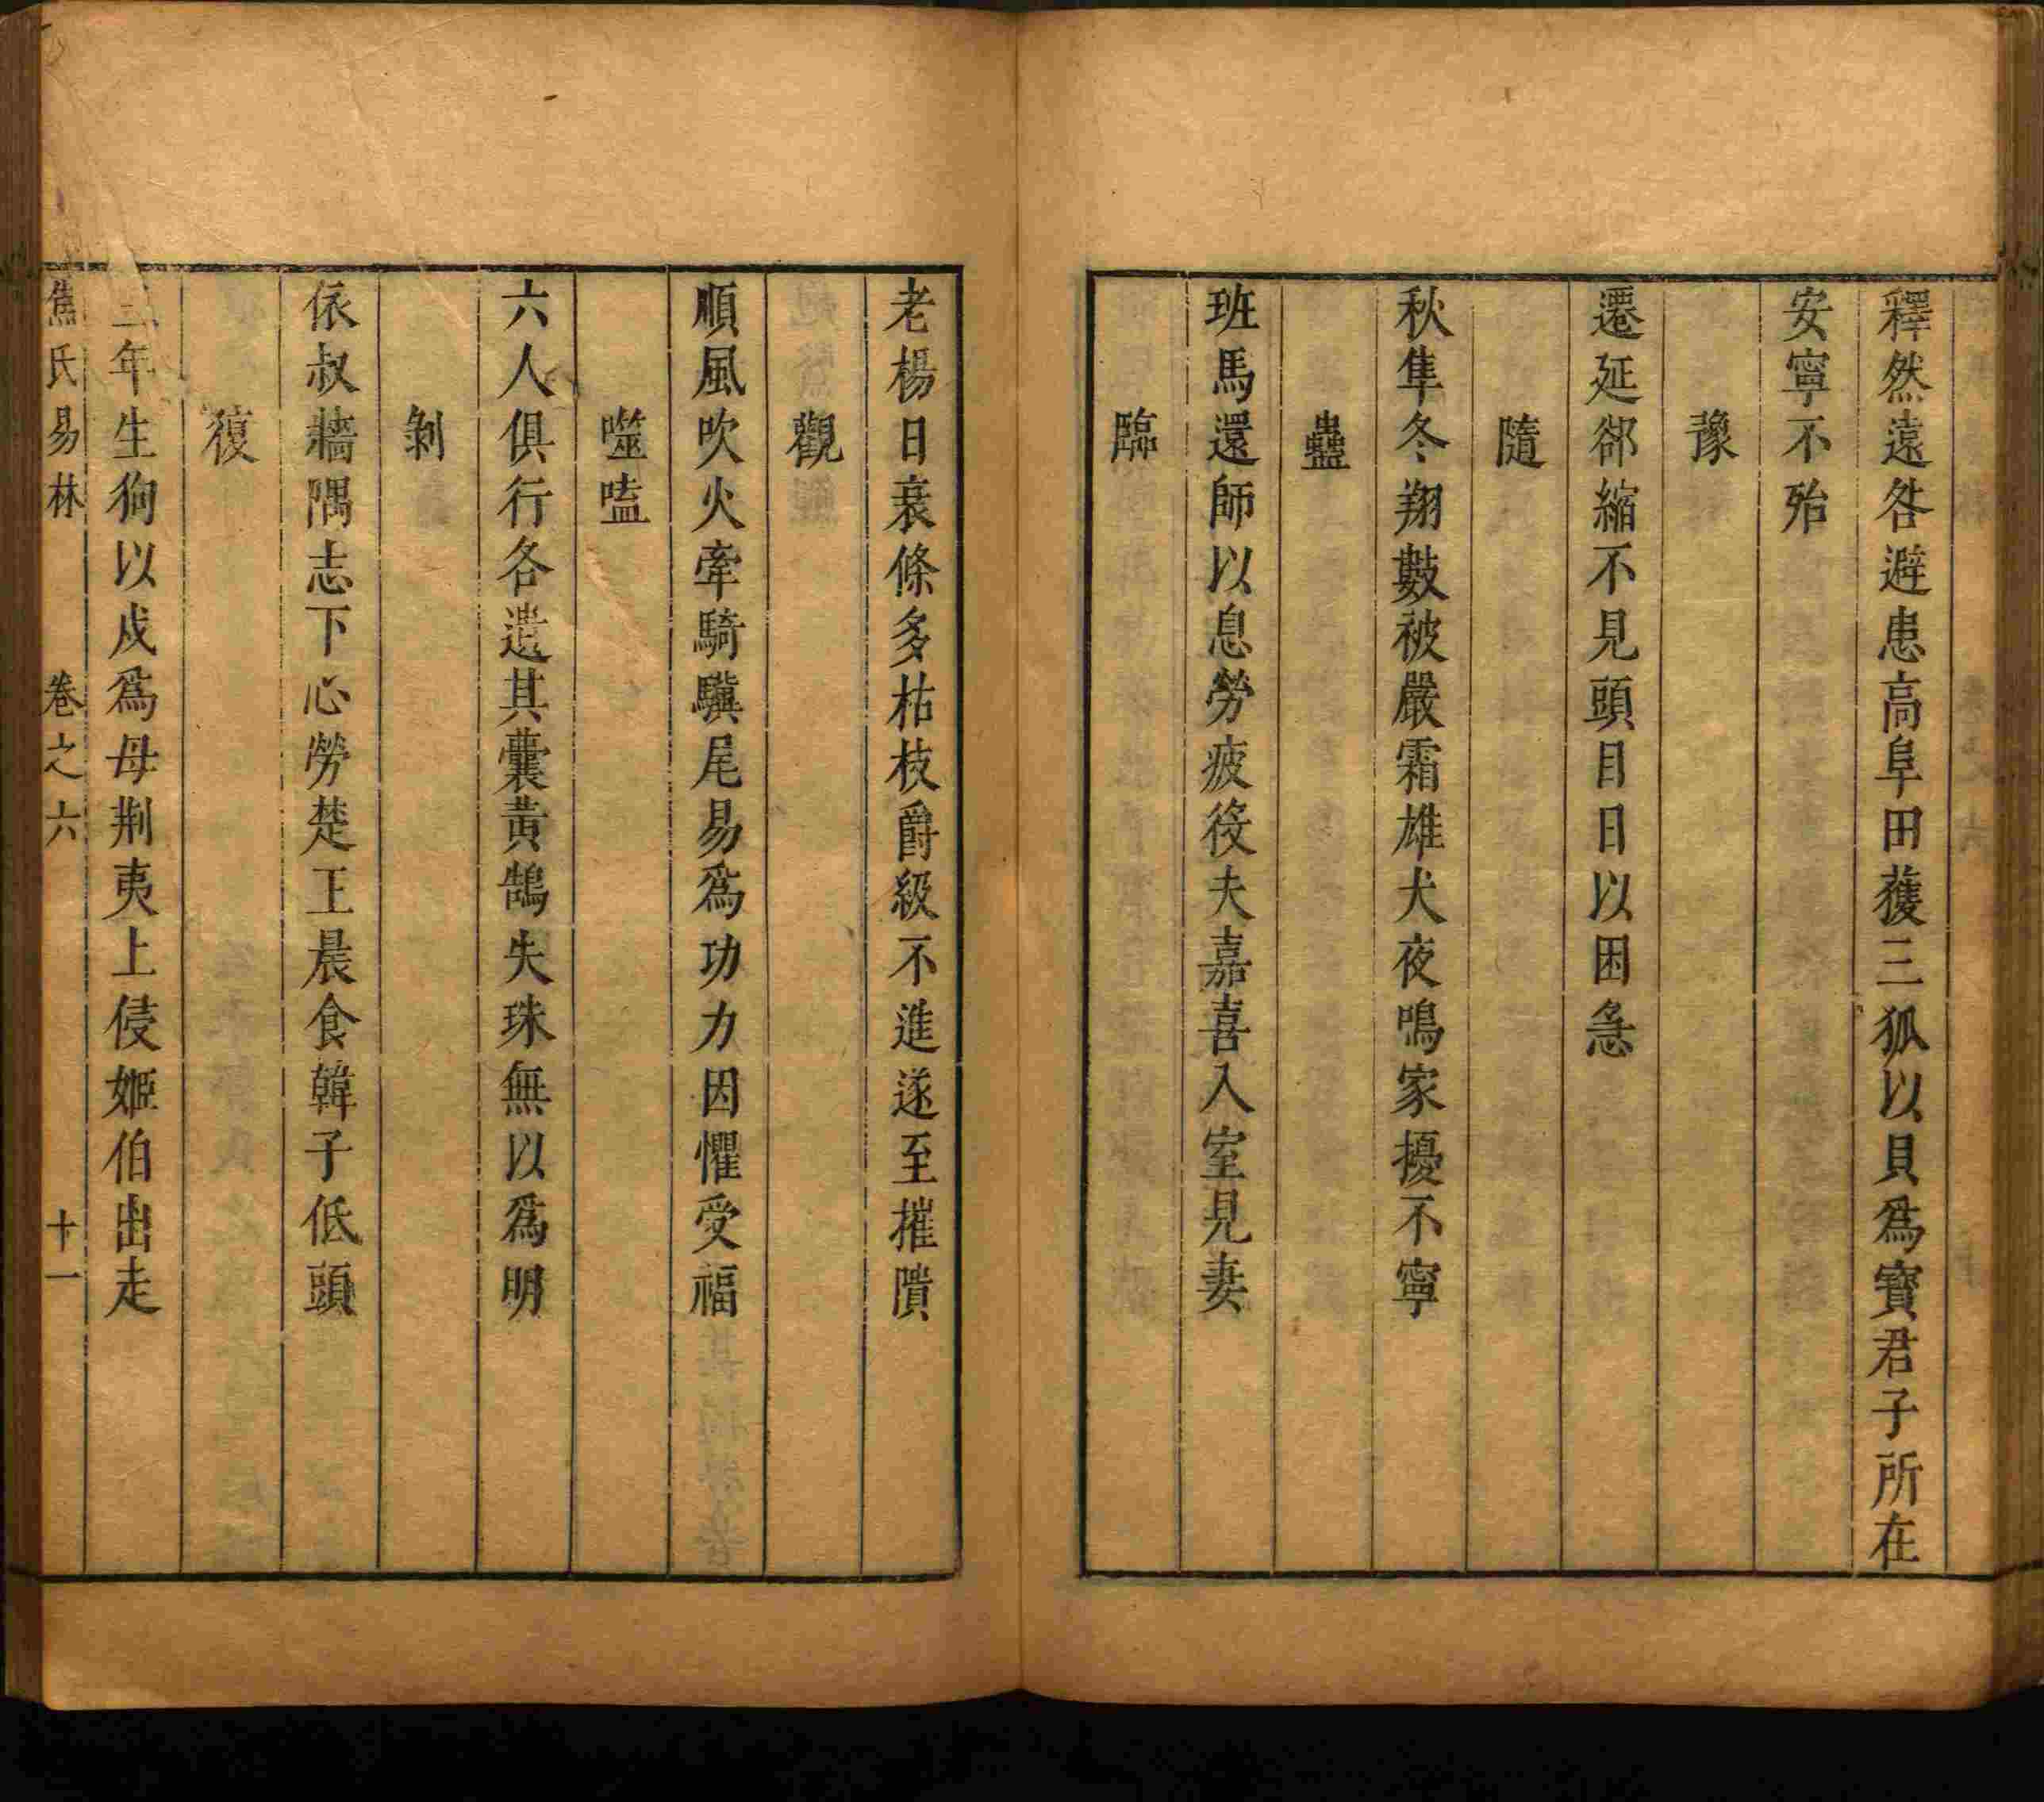 釋然遠咎避患高阜田獲三狐以貝爲寶君子所在
安寧不殆
豫
遷延郤縮不見頭目日以困急
隨
秋隼冬翔數被嚴霜雄犬夜鳴家擾不寧
蠱
班馬還師以息勞疲役夫嘉喜入室見妻
臨
老楊日衰條多枯枝爵級不進遂至摧隤
觀
順風吹火牽騎驥尾易爲功力因懼受福
噬嗑
六人俱行各遺其囊黃鵠失珠無以爲明
剝
依叔牆隅志下心勞楚王晨食韓子低頭
復
三年生狗以戌爲母荆夷上侵姬伯出走
焦氏易林 卷之六 十一